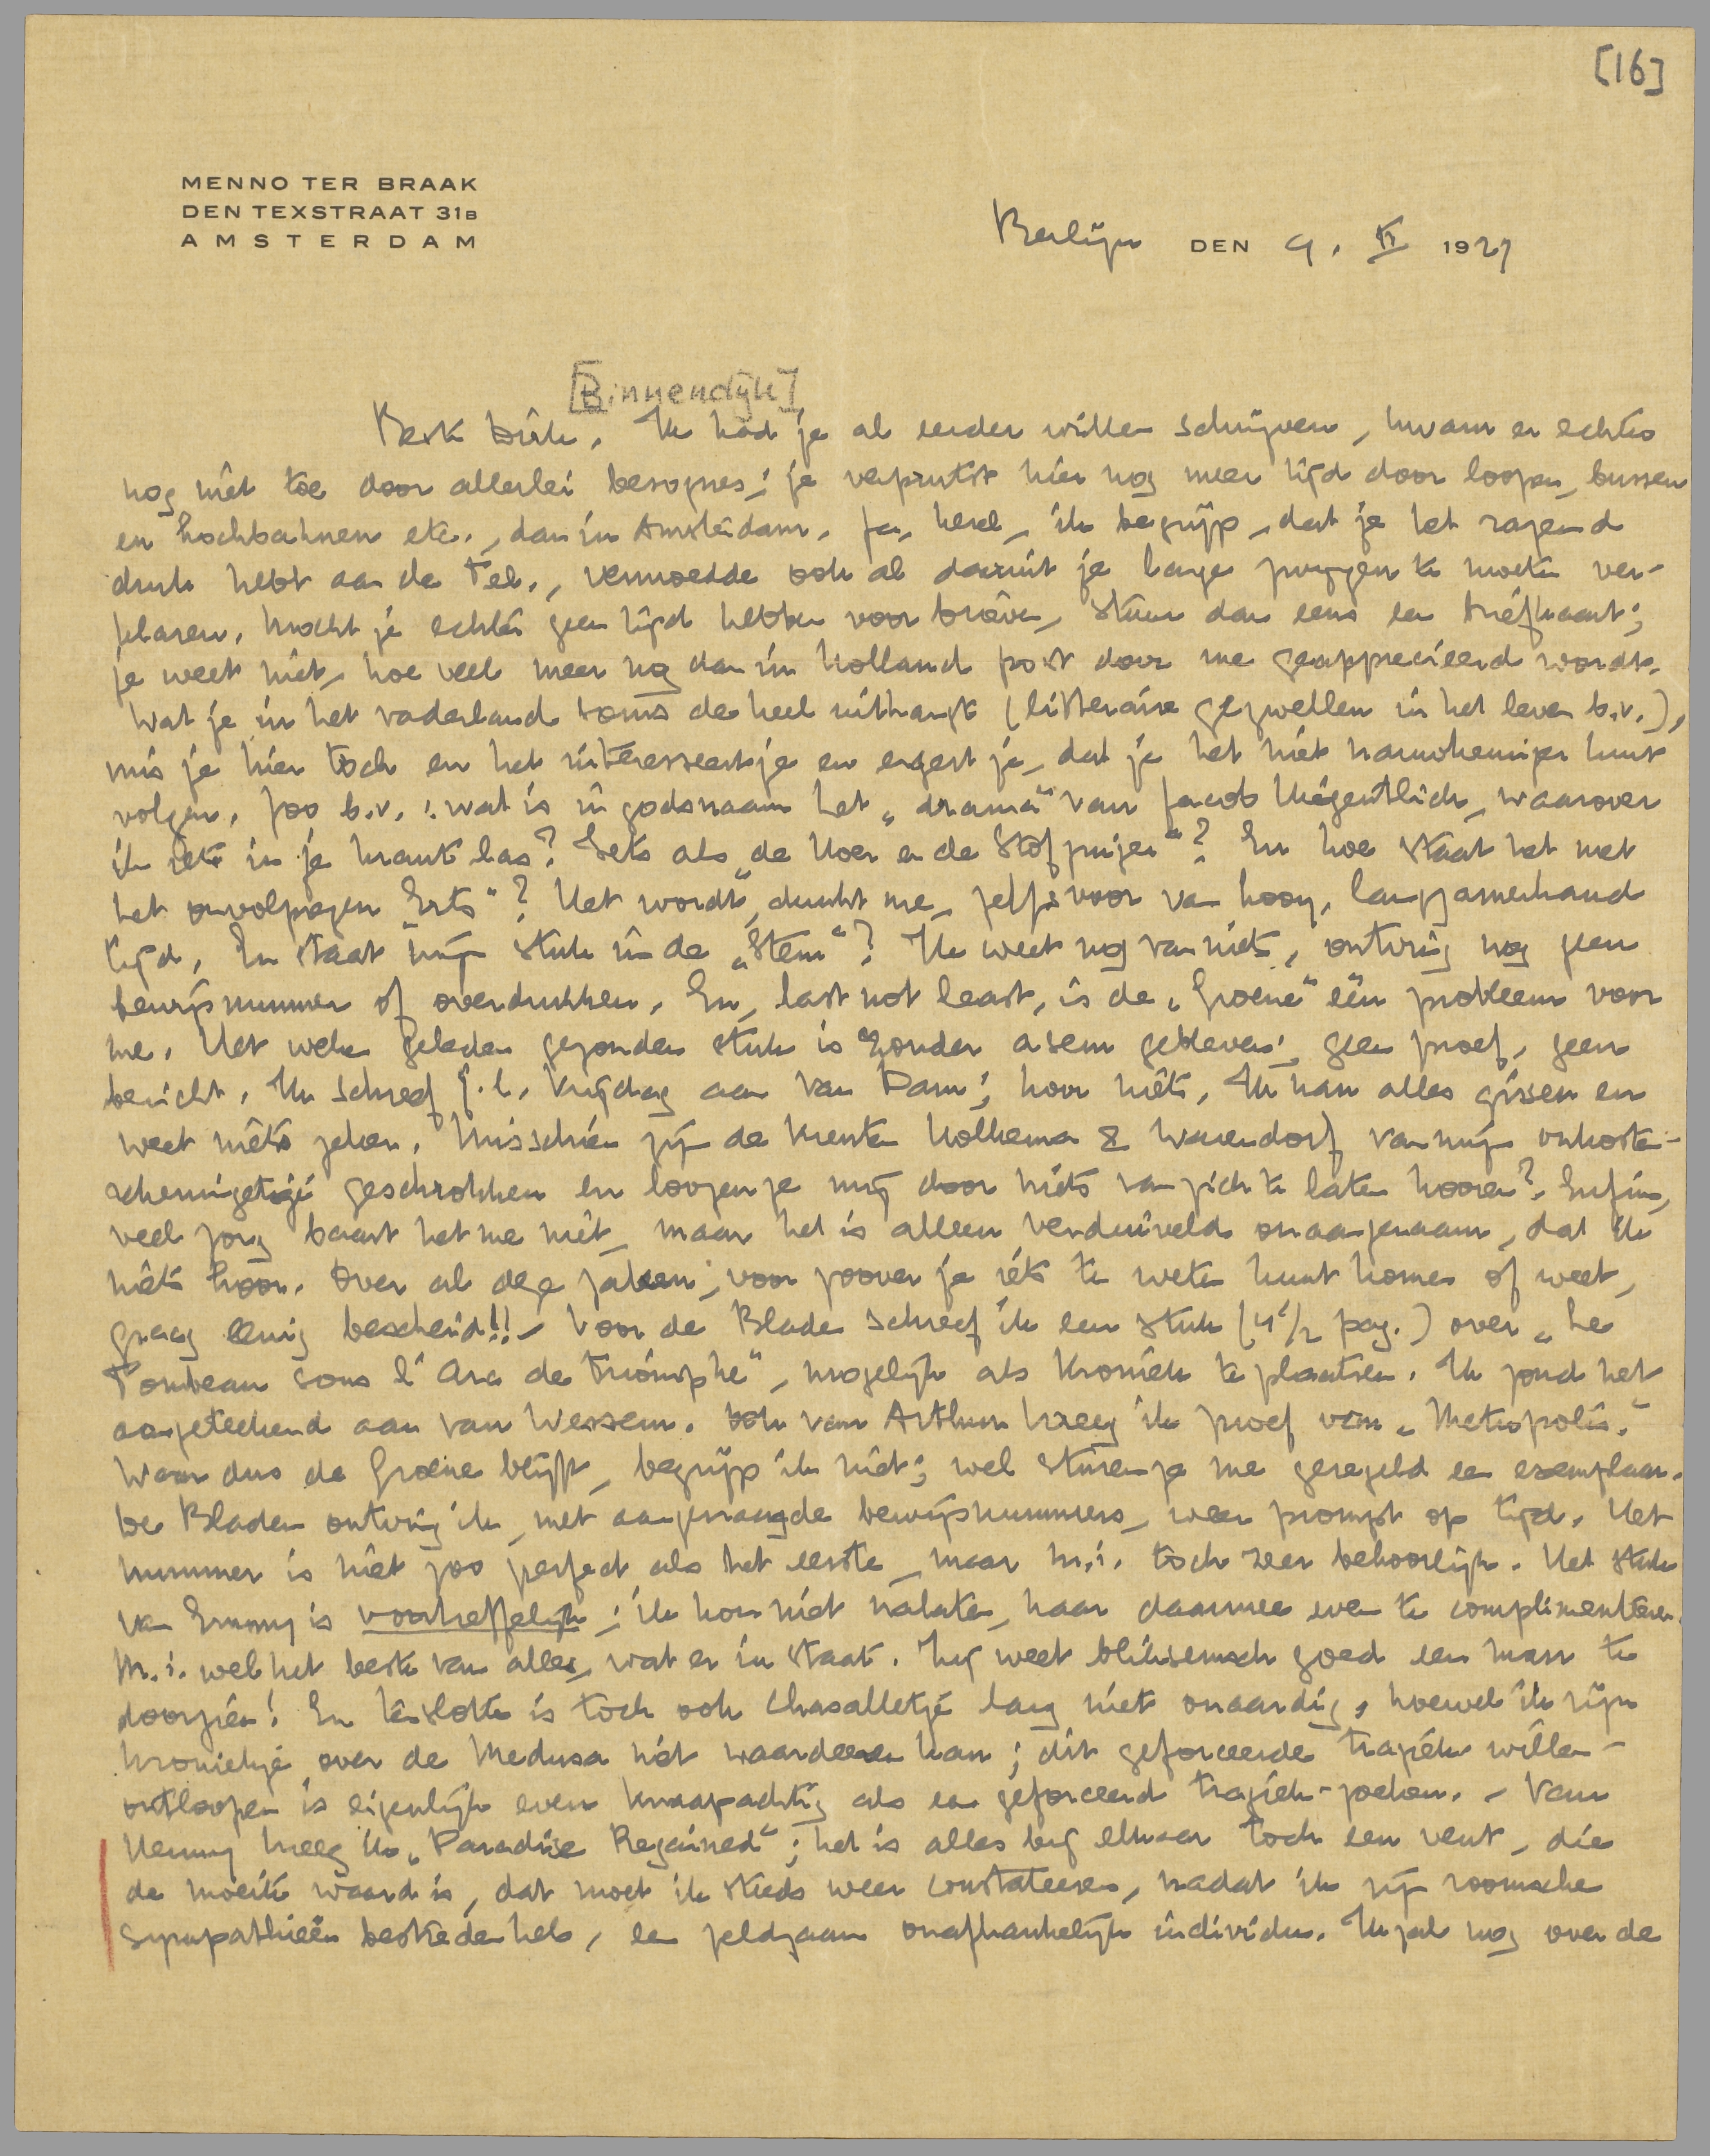 [16]
MENNO TER BRAAK
DEN TEXSTRAAT 31B
AMSTERDAM
Berlijn DEN 9. II 1927
[Binnendijk]
Beste Dirk. Ik had je al eerder willen schrijven, kwam er echter
nog niet toe door allerlei besognes; je verprutst hier nog meer tijd door loopen, bussen
en hochbahnen etc., dan in Amsterdam. Ja, heer, ik begrijp, dat je het razend
druk hebt aan de Tel., vermoedde ook al daaruit je lange zwijgen te moeten ver-
klaren. Mocht je echter geen tijd hebben voor brieven, stuur dan eens een briefkaart;
je weet niet, hoe veel meer nog dan in Holland post door me geapprecieerd wordt.
Wat je in het vaderland soms de keel uithangt (litteraire gezwellen in het leven b.v.),
mis je hier toch en het interesseert je en ergert je, dat je het niet nauwkeuriger kunt
volgen. Zoo b.v.: wat is in godsnaam het „drama" van Jacob Hiegentlich, waarover
ik iets in je krant las? Iets als „de Hoer en de Stofzuiger"? En hoe staat het met
het onvolprezen „Erts"? Het wordt, dunkt me, zelfs voor van Kooy, langzamerhand
tijd. En staat mijn stuk in de „Stem"? Ik weet nog van niets, ontving nog geen
bewijsnummer of overdrukken. En, last not least, is de „Groene" een probleem voor
me. Het weken geleden gezonden stuk is zonder asem gebleven; geen proef, geen
bericht. Ik schreef j.l. Vrijdag aan Van Dam; hoor niets. Ik kan alles gissen en
weet niets zeker. Misschien zijn de krenten Holkema & Warendorf van mijn onkosten-
rekeningetje geschrokken en loozen ze mij door niets van zich te laten hooren? Enfin,
veel zorg baart het me niet, maar het is alleen verduiveld onaangenaam, dat ik
niets hoor. Over al deze zaken, voor zoover je iets te weten kunt komen of weet,
graag eenig bescheid!! – Voor de Bladen schreef ik een stuk (4 1/2 pag.) over „Le
Tombeau sous l'Arc de Triomphe", mogelijk als kroniek te plaatsen. Ik zond het
aangeteekend aan van Wessem. Ook van Arthur kreeg ik proef van „Metropolis."
Waar dus de Groene blijft, begrijp ik niet; wel sturen ze me geregeld een exemplaar.
De Bladen ontving ik, met aangevraagde bewijsnummers, weer prompt op tijd. Het
nummer is niet zoo perfect als het eerste, maar m.i. toch zeer behoorlijk. Het stuk
van Emmy is voortreffelijk; ik kon niet nalaten, haar daarmee even te complimenteeren.
M.i. wel het beste van alles, wat er in staat. Zij weet bliksemsch goed een man te
doorzien! En tenslotte is toch ook Chasalletje lang niet onaardig, hoewel ik zijn
kroniekje over de Medusa niet waardeeren kan; dit geforceerde tragiek willen
ontloopen is eigenlijk even knaapachtig als een geforceerd tragiek-zoeken. – Van
Henny kreeg ik „Paradise Regained"; het is alles bij elkaar toch een vent, die
de moeite waard is, dat moet ik steeds weer constateeren, nadat ik zijn roomsche
sympathieën bestreden heb, een zeldzaam onafhankelijk individu. Ik zal nog over de